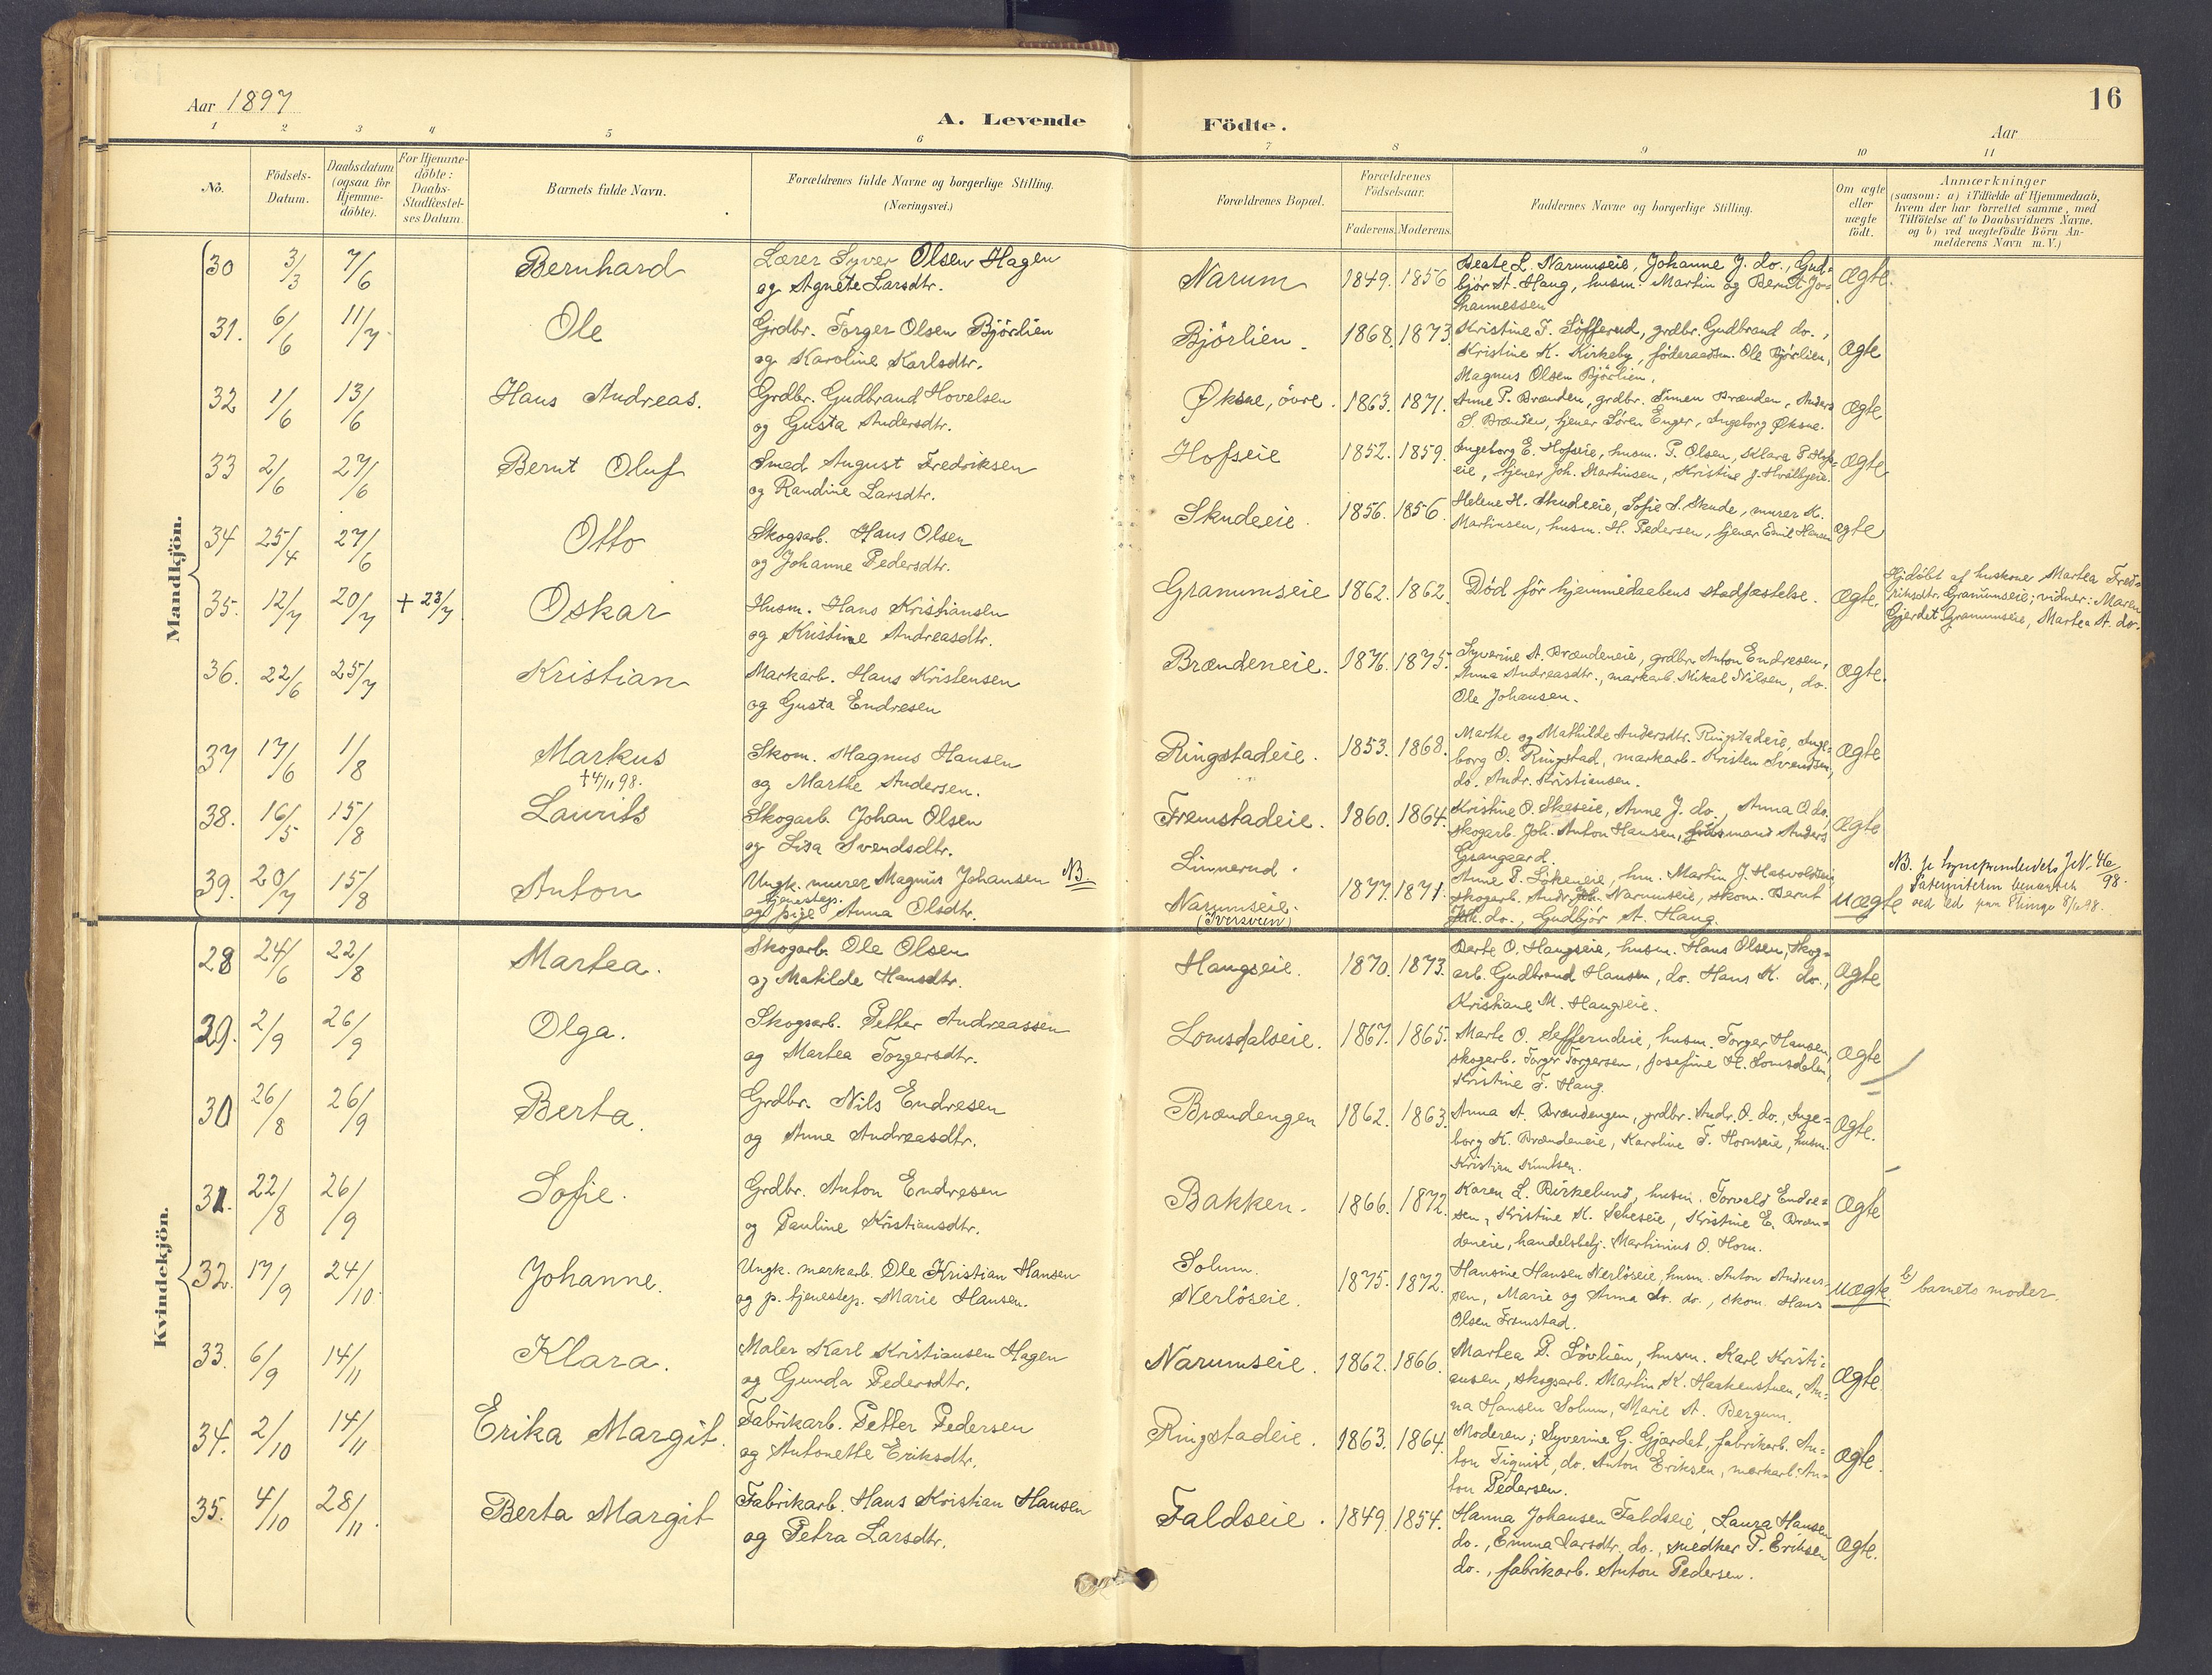 Aar 1897
A. Levende Födte.
Aar
16
1 2 3 4 5 6 7 8 9 10 11
No.
Födsels-Datum.
Daabsdatum (ogsaa for Hjemme-döbte).
For Hjemme-döbte: Daabs-Stadfæstel-ses Datum.
Barnets fulde Navn.
Forældrenes fulde Navne og borgerlige Stilling. (Næringsvei.)
Forældrenes Bopæl.
Forældrenes Födselsaar.
Faderens. Moderens.
Faddernes Navne og borgerlige Stilling.
Om ægte eller uægte födt.
Anmærkninger
(saasom: a) i Tilfælde af Hjemmedaab,
hvem der har forrettet samme, med
Tilföielse af to Daabsvidners Navne.
og b) ved uægtefödte Börn An-
melderens Navn m. V.)
Mandkjön.
30 3/3 7/6 Bernhard Lærer Syver Olsen Hagen
og Agnete Larsdtr.
Narum 1849. 1856
Beate L. Narumseie, Johanne J. do., Gud-
bjør A. Haug, husm. Martin og Bernt Jo-
hannessen
Ægte.
31. 6/6 11/7 Ole Grdbr. Torger Olsen Bjørlien
og Karoline Karlsdtr.
Bjørlien. 1868. 1873.
Kristine T. Søfferud, grdbr. Gudbrand do.,
Kristine K. Kirkeby, føderaadsm. Ole Bjørlien,
Magnus Olsen Bjørlien.
Ægte
32 1/6 13/6 Hans Andreas. Grdbr. Gudbrand Hovelsen
og Gusta Andersdtr.
Øksne, övre. 1863. 1871.
Anne P. Brænden, grdbr. Simen Brænden, Anders
S. Brænden, tjener Søren Enger, Ingeborg Øksne.
Ægte
33 2/6 27/6 Bernt Oluf Smed August Fredriksen
og Randine Larsdtr.
Hofseie 1852. 1859.
Ingeborg E. Hofseie, husm. P. Olsen, Klara P. Hofs-
eie, tjener Joh. Martinsen, Kristine J.
Ægte
34 25/4 27/6 Otto Skogsarb. Hans Olsen
og Johanne Pedersdtr.
Skudeeie. 1856. 1856.
Helene H. Skudeeie, Sofie S. Skude, murer K.
Martinsen, husm. H. Pedersen, tjener Emil Hansen
ægte
35. 12/7 20/7 + 23/7 Oskar Husm. Hans Kristiansen
og Kristine Andreasdtr.
Granumseie 1862. 1862.
Død før hjemmedaabens stadfæstelse.
Ægte.
Hjdöbt af huskone Martea Fred-
riksdtr. Granumseie; vidner: Maren
Gjerdet Granumseie, Martea A. do.
36. 22/6 25/7 Kristian Markarb. Hans Kristensen
og Gusta Endresen
Brændeneie. 1876. 1875.
Syverine A. Brændeneie, grdbr. Anton Endresen,
Anna Andreasdtr., markarb. Mikal Nilsen, do.
Ole Johansen.
Ægte.
37 17/6 1/8 Markus
† 4/11 98.
Skom. Magnus Hansen
og Marthe Andersen.
Ringstadeie. 1853. 1868.
Marthe og Mathilde Andersdtr. Ringstadeie, Inge-
borg O. Ringstad, markarb. Kristen Svendsen,
do. Andr. Kristiansen.
Ægte
38. 16/5 15/8 Laurits Skogarb. Johan Olsen
og Lisa Svendsdtr.
Fremstadeie. 1860. 1864.
Kristine O. Skeseie, Anne J. do., Anna O. do.,
skogarb. Joh. Anton Hansen, husmand Anders
Grangaard.
Ægte
39. 20/7 15/8 Anton Ungk. murer Magnus Johansen NB.
og tjenestep. pige Anna Olsdtr.
Linnerud.
Narumseie.
(Iversveen)
1877. 1871.
Anne P. Løkeneie, hm. Martin J.
skogarb. Andr. Joh. Narumseie, skom. Bernt
Joh. do., Gudbjør A. Haug.
Uægte
NB. JN. 46/98.
8/6 98.
Kvindekjön.
28 24/6 22/8 Martea. Skogarb. Ole Olsen
og Matilde Hansdtr.
Haugseie. 1870. 1873.
Berte O. Haugseie, husm. Hans Olsen, skog-
arb. Gudbrand Hansen, do. Hans K. do.,
Kristiane M. Haugseie.
Ægte
29. 2/9 26/9 Olga. Skogsarb. Petter Andreassen
og Martea Torgersdtr.
Lomsdalseie. 1867. 1865.
Marte O. Sefferndeie, husm. Torger Hansen,
skogarb. Torger Torgersen, Josefine H. Lomsdalen,
Kristine T. Haug.
Ægte
30 26/8 26/9 Berta. Grdbr. Nils Endresen
og Anne Andreasdtr.
Brændengen 1862. 1863.
Anna A. Brændengen, grdbr. Andr. O. do., Inge-
borg K. Brændeneie, Karoline T. Hornseie, husm.
Kristian Knutsen.
Ægte.
31. 22/8 26/9 Sofie. Grdbr. Anton Endresen
og Pauline Kristiansdtr.
Bakken. 1866. 1872.
Karen L. Birkelund, husm. Torvald Endre-
sen, Kristine K. Skeseie, Kristine E. Bræn-
deneie, handelsbetj. Martinius O. Horn.
Ægte
32. 17/9 24/10. Johanne. Ungk. markarb. Ole Kristian Hansen
og p. tjenestep. Marie Hansen.
Solum.
Nerlöseie. 1875. 1872.
Hansine Hansen Nerlöseie, husm. Anton Andreas-
sen, Marie og Anna do. do., skom. Hans
Olsen Fremstad.
Uægte.
b) barnets moder.
33. 6/9 14/11 Klara. Maler Karl Kristiansen Hagen
og Gunda Pedersdtr.
Narumseie. 1862. 1866.
Martea P. Løvlien, husm. Karl Kristi-
ansen, skogsarb. Martin K. Haakenstuen, An-
na Hansen Solum, Marie A. Bergum.
Ægte.
34. 2/10 14/11 Erika Margit. Fabrikarb. Petter Pedersen
og Antonette Eriksdtr.
Ringstadeie. 1863. 1864.
Moderen; Syverine G. Gjærdet, fabrikarb. An-
ton Tiqvist, do. Anton Eriksen, markarb. An-
ton Pedersen.
Ægte.
35. 4/10 28/11. Berta Margit Fabrikarb. Hans Kristian Hansen
og Petra Larsdtr.
Faldseie. 1849. 1854.
Hanna Johansen Faldseie, Laura Hansen
do., Emma Larsdtr. do., snedker P. Eriksen
do., fabrikarb. Anton Pedersen.
Ægte.